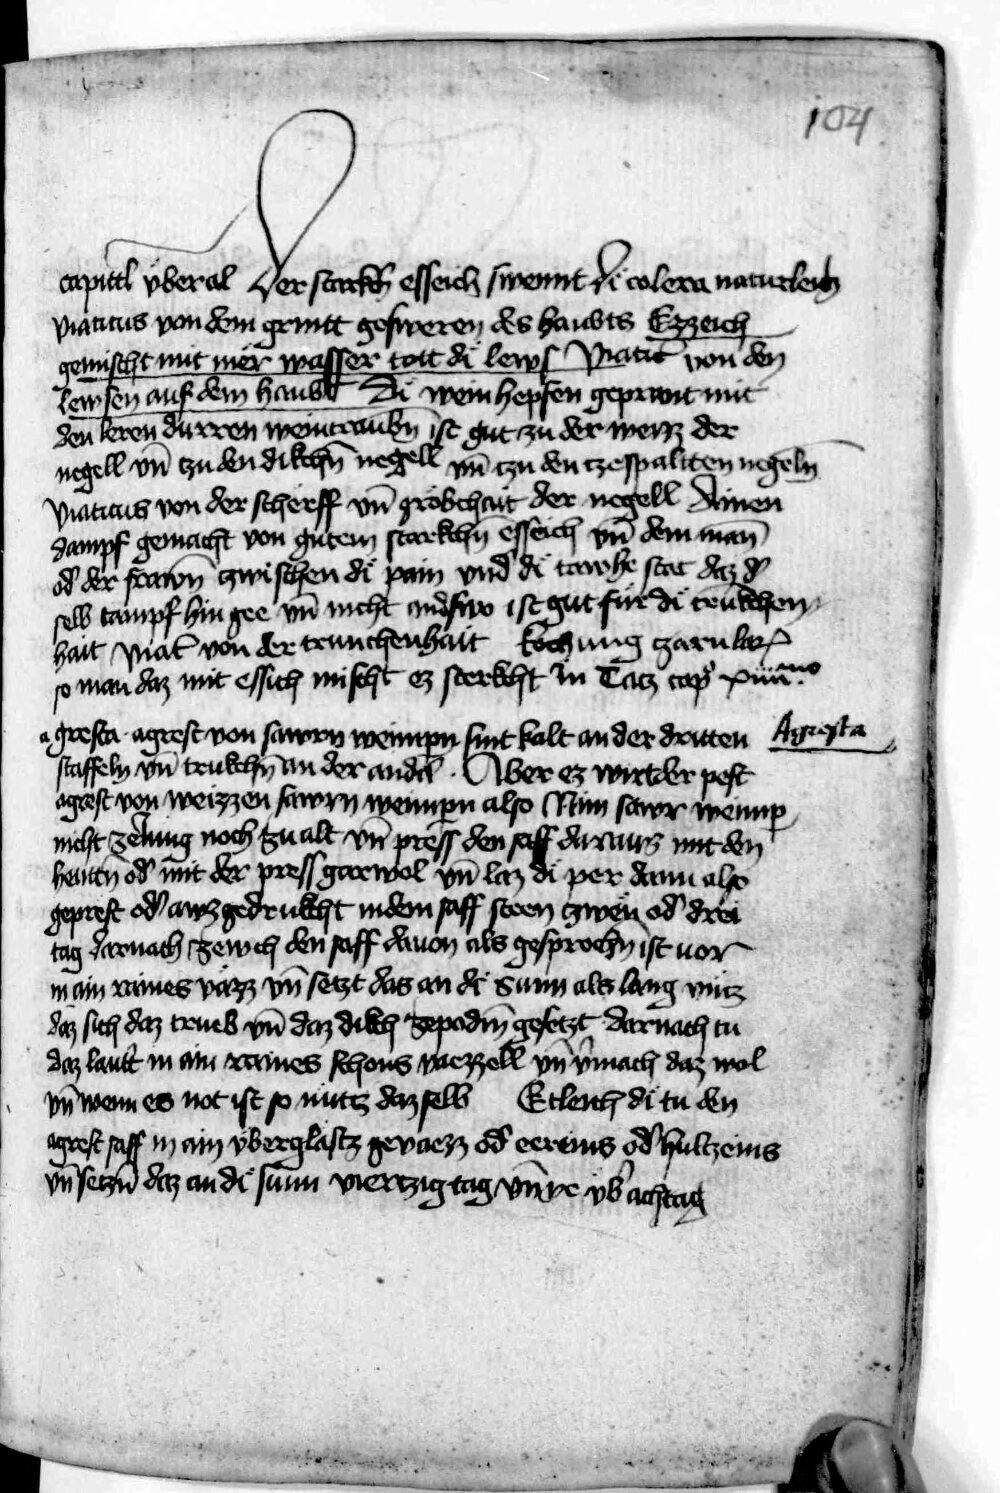 104
capittl v̈beral Der starkch esseich swennt di colera naturleich
viaticus von dem grintt gesweren des haubts Ezzeich
gemischt mit mër wasser tott di lews Viatic von den
lewsen auf dem haubt Di weinhepfen geprant mit
den leren durren weintraubn̄ ist gut zu der weizz der
negell vn̄ tzu den dikchn̄ negell vn̄ tzu den tzespaltten negeln̄
viaticus von der scherff vn̄ gröbchait der negell Ainen
dampf gemacht von gutem starkchn̄ esseich vn̄ dem man̄
od der frawn̄ zwischen di pain vnd di tawhe stat daz d
selb tampf hin gee vn̄ nicht anderswo ist gut für di trukchen
hait viat von der trunchenhait kochung
so man daz mit essich mischt ez sterkcht in Tacz cap xiiii mo
agresta agrest von sawrn weinpern sint kalt an der dritten
Agresta
staffeln vn̄ trukchn̄ an der andern Aber ez wirt der pest
agrest von weizzen sawrn weinpern also Nim sawr weinper
nicht ze iung noch zu alt vn̄ press den saff daraws mit den
henttn̄ od mit der press garwol vn̄ laz di per dann also
geprest od awzgedrukcht in dem saff steen zwen od drei
tag darnach zewch den saff dauon als gesprochn̄ ist vor
in ain raines väzz vn̄ setzt das an di sunn als lang vnttz
daz sich daz trueb vn̄ daz dikch ze podm̄ gesetzt darnach tu
daz lautter in ain raines schons vaezzell vn̄ vermach daz wol
vn̄ wenn es not ist so nutz daz selb Etleich di tu den
agrest saff in ain v̈berglastz gevaezz od eereins od hultzeins
vn̄ setzn̄ daz an di sunn viertzig tag vn̄ ye v̈ber achttag